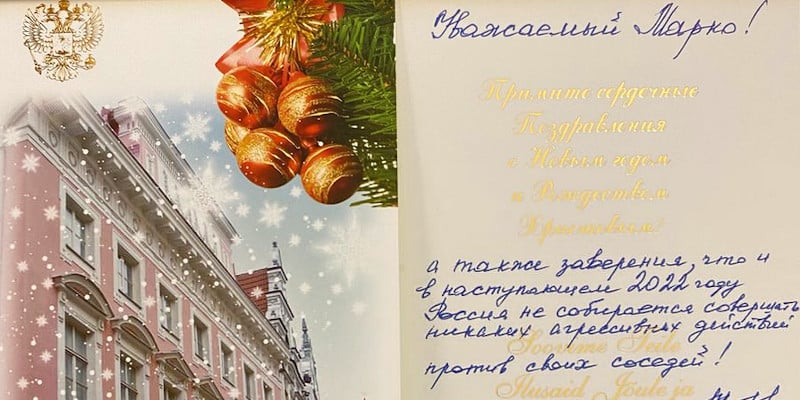 Уважаемый Марко!
Примите сердечные
Поздравления
с Новым годом
и Рождеством
Христовым!
а также заверения, что и
в наступающем 2022 году
Россия не собирается совершать
никаких агрессивных действий
Soovime Teile
против своих соседей!
Ilusaid Jõule ja